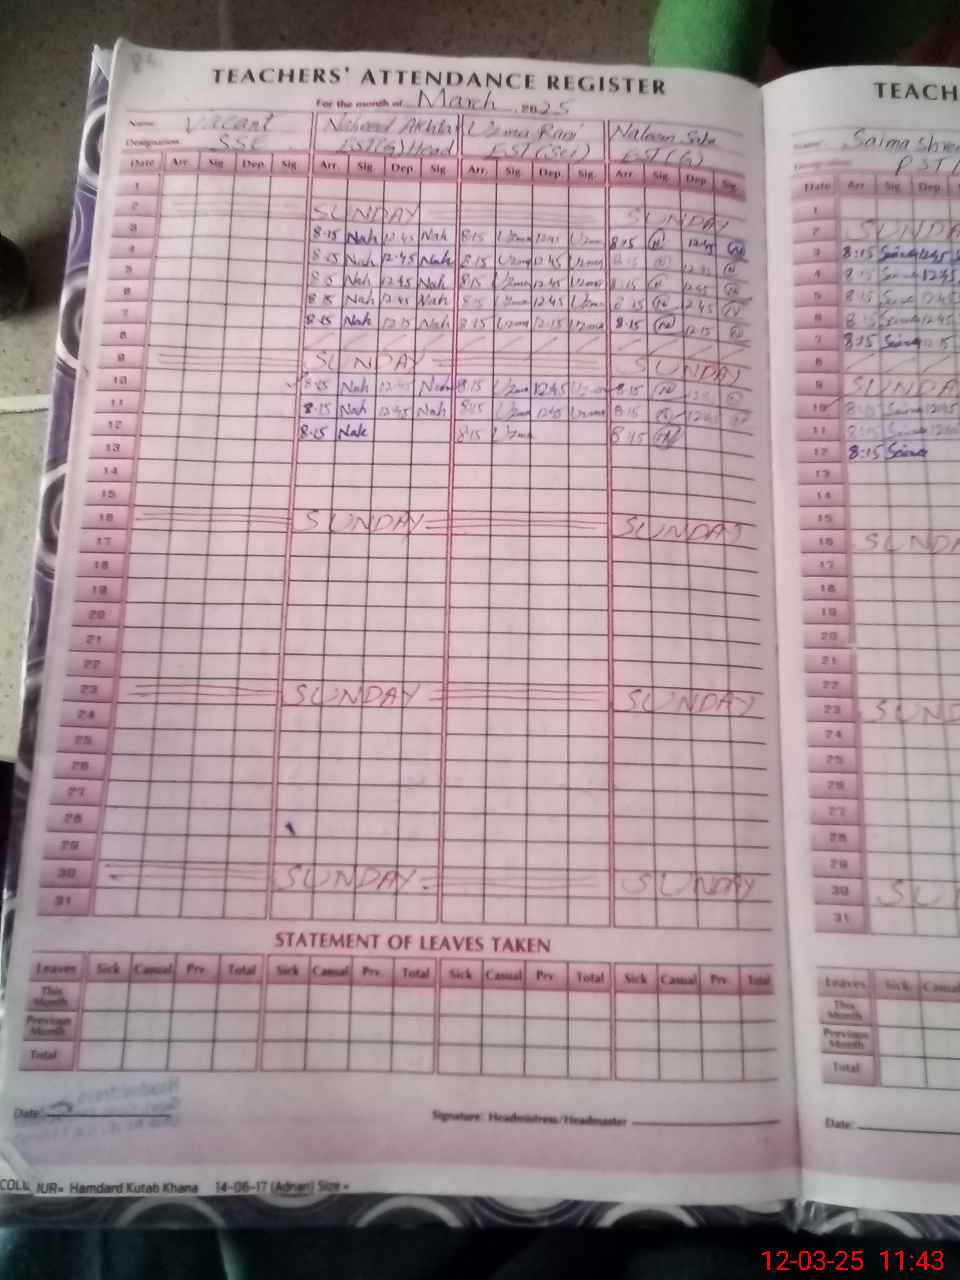 TEACHERS' ATTENDANCE REGISTER
For the month of March 2025
Name: Vacant Naheed Akhtar Uzma Rani
Designation: SSE EST(G) Head EST(Sci) EST(G)
Date Arr. Sig Dep. Sig. Arr. Sig. Dep. Sig Arr. Sig. Dep. Sig. Arr. Sig. Dep Sig.
1
2 SUNDAY SUNDAY
3 8:15 Nah 12:45 Nah 8:15 Uzma 12:45 Uzma 8:15 N 12:45 N
4 8:15 Nah 12:45 Nah 8:15 Uzma 12:45 Uzma 8:15 N 12:45 N
5 8:15 Nah 12:45 Nah 8:15 Uzma 12:45 Uzma 8:15 N 12:45 N
6 8:15 Nah 12:45 Nah 8:15 Uzma 12:45 Uzma 8:15 N 12:45 N
7 8:15 Nah 12:15 Nah 8:15 Uzma 12:15 Uzma 8:15 N 12:15 N
8
9 SUNDAY SUNDAY
10 8:15 Nah 12:45 Nah 8:15 Uzma 12:45 Uzma 8:15 N
11 8:15 Nah 12:45 Nah 8:15 Uzma 12:45 Uzma 8:15 N
12 8:15 Nah 8:15 Uzma 8:15 N
13
14
15
16 SUNDAY SUNDAY
17
18
19
20
21
22
23 SUNDAY SUNDAY
24
25
26
27
28
29
30 SUNDAY SUNDAY
31
STATEMENT OF LEAVES TAKEN
Leaves Sick Casual Prv. Total Sick Casual Prv. Total Sick Casual Prv. Total Sick Casual Prv. Total
This Month
Previous Month
Total
Date: Signature: Headmistress/Headmaster
Hamdard Kutab Khana 14-06-17 (Adnan) Size =
TEACH
Saima
PST
Date Arr Sig Dep.
1
2 SUNDA
3 8:15 Saima 12:45
4 8:15 Saima 12:45
5 8:15 Saima 12:45
6 8:15 Saima 12:45
7 8:15 Saima 12:15
8
9 SUNDA
10 8:15 Saima 12:45
11 8:15 Saima
12 8:15 Saima
13
14
15
16 SUNDA
17
18
19
20
21
22
23 SUND
24
25
26
27
28
29
30 SU
31
Leaves Sick Casual
This Month
Previous Month
Total
Date:
12-03-25 11:43